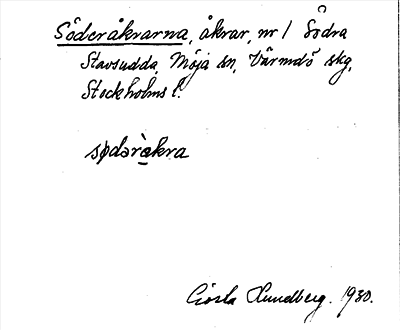 Söderåkrarna, åkrar, nr 1 Södra
Stavsudda, Möja sn, Värmdö skg,
Stockholms l.
sødəràkra
Gösta Lundberg. 1930.